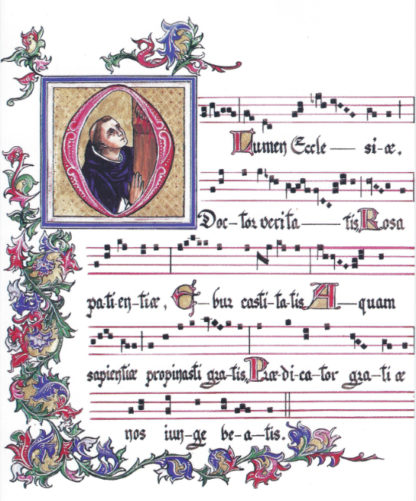 O Lumen Eccle — si — æ.
Doc – tor verita — tis, Rosa
pa – ti – en – tiæ, E – bur casti – ta – tis, A — quam
sapientiæ propinasti gra – tis, Præ – di – ca – tor gra – ti æ
nos iun – ge be – a – tis.